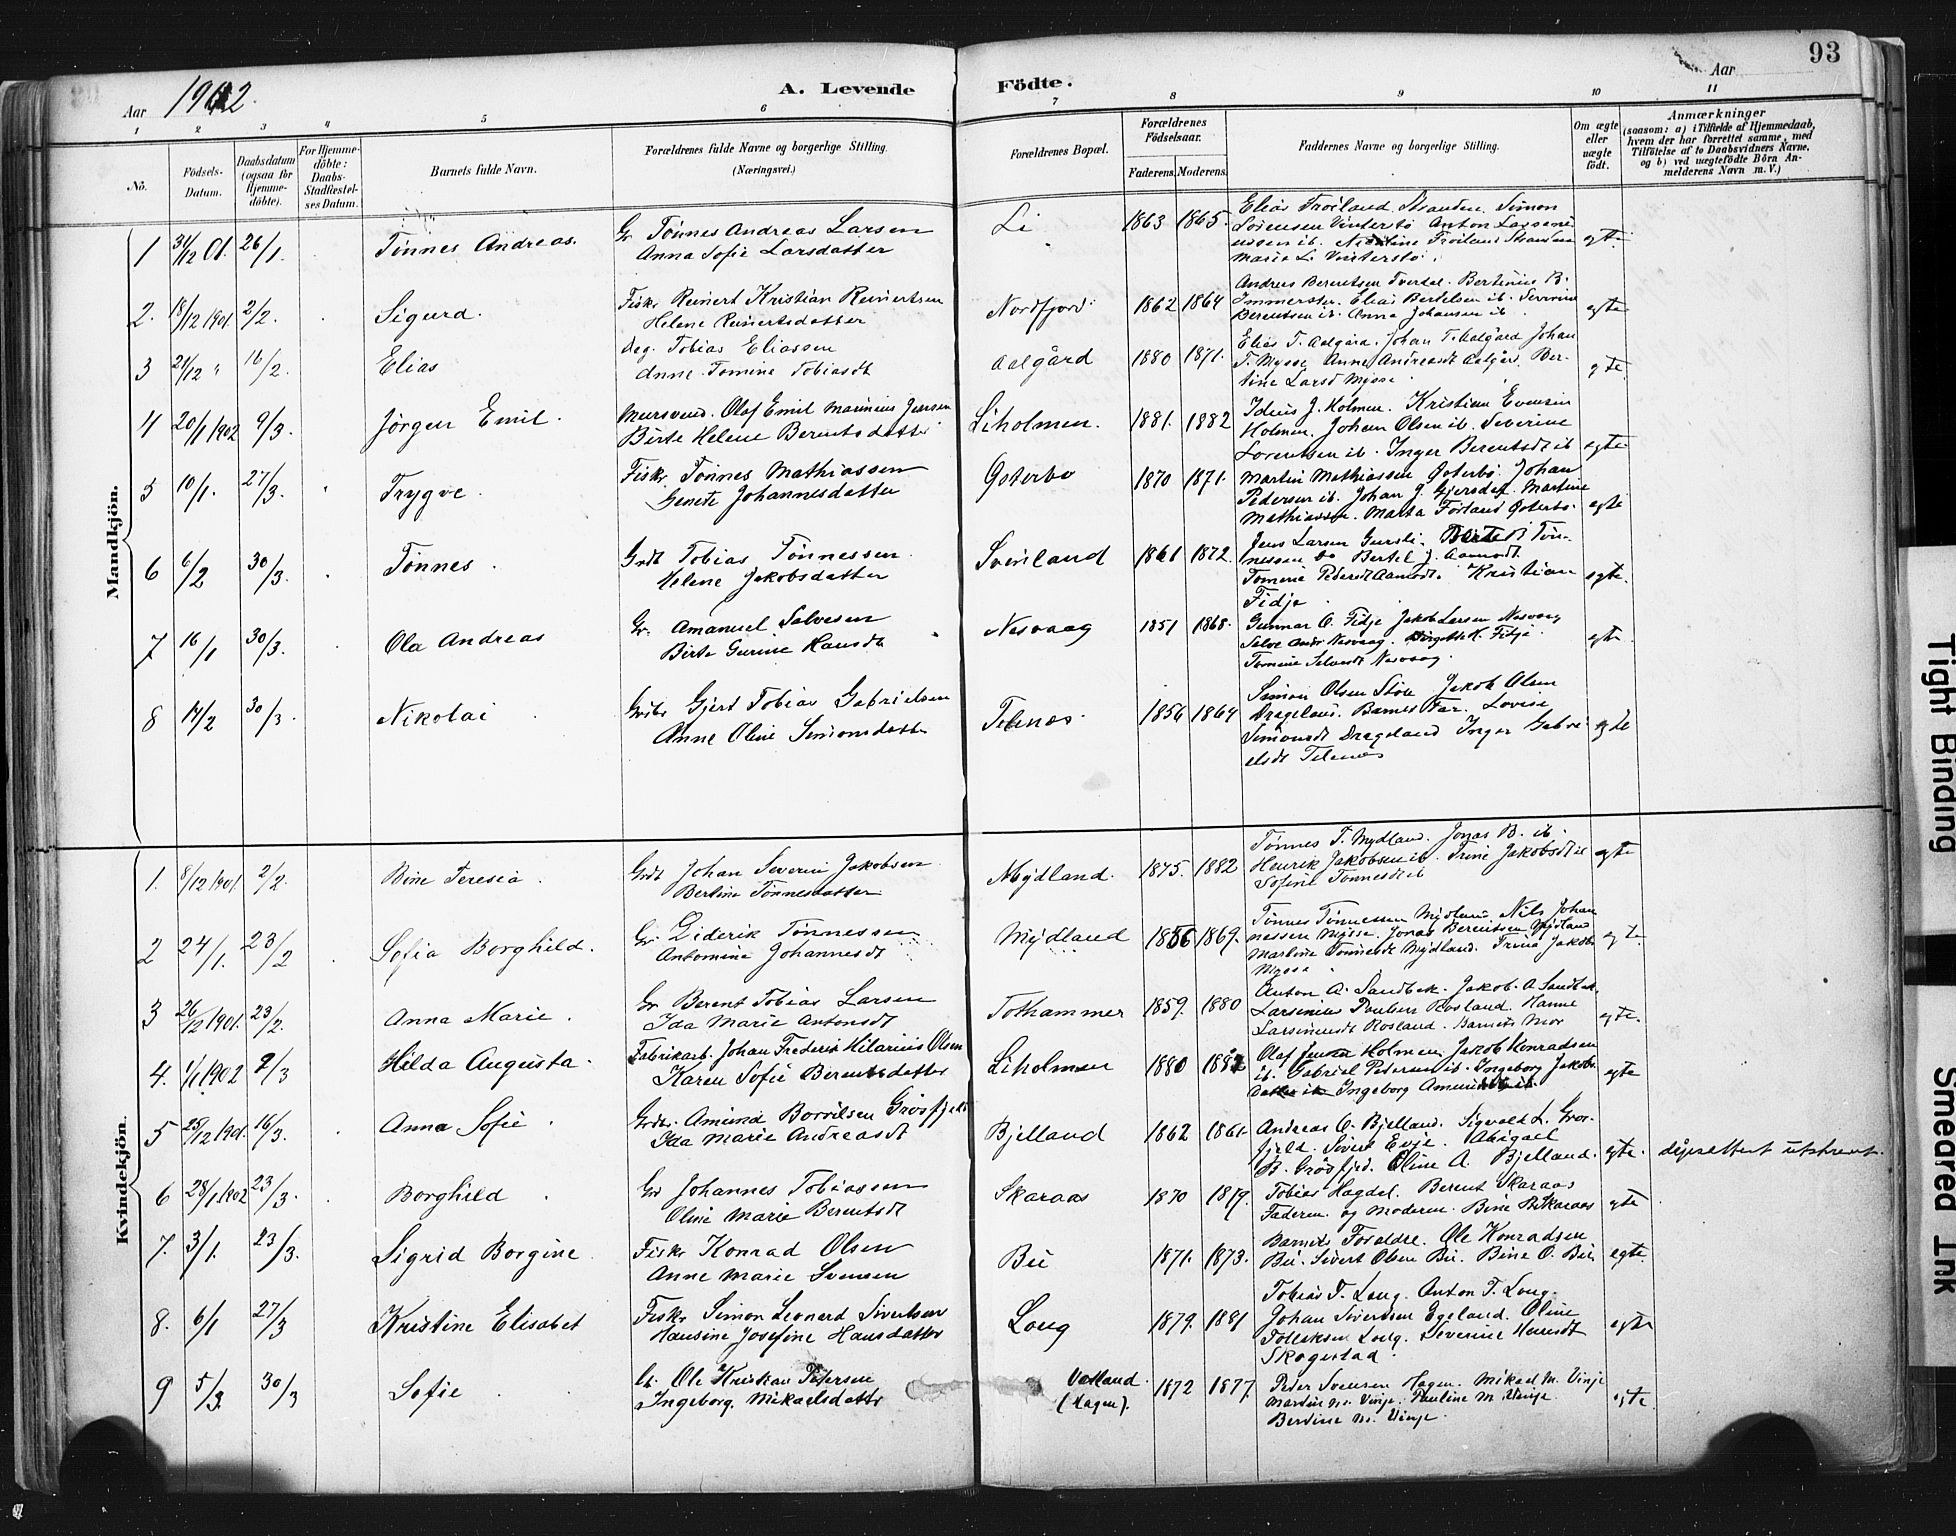 93
Aar 1902.
A. Levende
Födte.
Aar
1 2 3 4 5 6 7 8 9 10 11
No.
Födsels-Datum.
Daabsdatum (ogsaa for Hjemmedöbte).
For Hjemmedöbte: Daabs-Stadfæstelses Datum.
Barnets fulde Navn.
Forældrenes fulde Navne og borgerlige Stilling.
(Næringsvei.)
Forældrenes Bopæl.
Forældrenes Födselsaar.
Faderens. Moderens.
Faddernes Navne og borgerlige Stilling.
Om ægte eller uægte födt.
Anmærkninger
(saasom: a) i Tilfælde af Hjemmedaab, hvem der har forrettet samme, med Tilföielse af to Daabsvidners Navne, og b) ved uægtefödte Börn Anmelderens Navn m. V.)
Mandkjön.
1 31/12 01. 26/1. Tönnes Andreas. Gr. Tönnes Andreas Larsen
Anna Sofie Larsdatter
Li 1863 1865.
Elias Tröiland Stranden. Simon
Sörensen Vinterstö Anton
Maria Li Vinterstö.
egte
2. 18/12 1901. 2/2. Sigurd. Fisk. Reinert Kristian Reinertsen
Helene Reinertsdatter
Nordfjord 1862 1864
Andreas Berentsen Tverdal. Bertinius B.
Immerstein. Elias Bertelsen ib. Severine
Berentsen ib. Anna Johansen ib.
egte
3 21/12 " 16/2. Elias Tobias Eliassen
Anne Tomine Tobiasdt
Aalgård 1880 1871.
Elias T. Aalgård. Johan T. Aalgård Johan
T. Mysse Anne Andreasdt Aalgård. Ber-
tine Larsd Mysse
egte
4 20/1 1902 9/3. Jörgen Emil. Murersvend. Olaf Emil Marinius Jensen
Birte Helene Berentsdatter
Liholmen. 1881. 1882
J. Holmen. Kristian Evensen
Holmen. Johan Olsen ib. Severine
Lorentsen ib. Inger Berentsdt ib
egte
5 10/1. 27/3. Trygve. Fisk. Tönnes Mathiassen
Genete Johannesdatter
Goterbö 1870 1871.
Martin Mathiassen Goterbö. Johan
Pedersen ib. Johan J. Gjersdal. Martine
Mathiassen. Marta Förland Goterbö.
egte
6 6/2 30/3. Tönnes. Grdt Tobias Tönnessen
Helene Jakobsdatter
Svinland 1861 1872.
Jens Larsen Gursli. Tön-
nessen Bertel J. Aamodt.
Tomine Pedersdt Aamodt. Kristian
Fidje
egte.
7 16/1 30/3. Ola Andreas Gr. Amanuel Salvesen
Birte Gurine Hansdt
Nesvaag 1851 1868.
Gunnar O. Fidje Jakob Larsen Nesvaag
Salve Nesvaag. K. Fidje.
Tomine Nesvaag.
egte
8 14/2 30/3. Nikolai Grdbr. Gjert Tobias Gabrielsen
Anne Oline Simonsdatter
Telenæs 1856 1864
Simon Olsen Stöle Jakob Olsen
Drageland. Barnets Far. Lovise
Simonsdt Drageland Inger Gabri-
elsdt Telenæs
egte
Kvindekjön.
1. 8/12 1901. 2/2. Bine Teresia. Grdt Johan Severin Jakobsen
Bertine Tönnesdatter
Mydland. 1875. 1882
Tönnes T. Mydland. Jonas B. ib.
Henrik Jakobsen ib. Trine Jakobsdt ib
Sofine Tönnesdt ib
egte
2 24/1. 23/2 Sofia Borghild. Gr. Diderik Tönnessen
Antomine Johannesdt
Mydland 1856 1869.
Tönnes Tönnessen Mydland. Nils Johan
nessen Mysse. Jonas Berentsen Mydland
Martine Tönnesdt Mydland. Trina Jakobs
Mysse.
egte
3 26/12 1901. 23/2. Anna Marie. Gr Berent Tobias Larsen
Ida Marie Antonsdt
Tothammer 1859. 1880
Anton A. Sandbek. Jakob. A. Sandbek.
Larsinius Paulsen Rosland. Hanne
Larsiniusdt Rosland. Barnets Mor
egte.
4. 1/1 1902 2/3 Hilda Augusta. Fabrikarb. Johan Frederik Hilarius Olsen
Karen Sofie Berentsdatter
Liholmen 1880 1882
Olaf Jensen Holmen Jakob Konradsen
ib. Gabriel Petersen ib. Ingeborg Jakobs
datter ib Ingeborg ib.
egte
5 25/12 1901. 16/3. Anna Sofie. Grdbr. Amund Borrilsen Grösfjeld
Ida Marie Andreasdt
Bjelland 1862 1861.
Andreas O. Bjelland. Sigvald L. Grös-
fjeld. Sivert Evje. Abigael
B. Grösfjed. Oline A. Bjelland.
egte. dipsattest utskrevet.
6 28/1 1902 23/3. Borghild. Gr Johannes Tobiassen
Oline Marie Berentsdt
Skaraas 1870 1879.
Tobias Hagdal. Berent Skaraas
Faderen og Moderen. Bine Skaraas
egte
7. 3/1. 23/3. Sigrid Borgine Fisk. Konrad Olsen
Anne Marie Svensen
Bu 1871. 1873.
Barnets Foraldre. Ole Konradsen
Bu. Sivert Olsen Bu. Bine O. Bu
egte.
8. 6/1 27/3 Kristine Elisabet Fisk. Simon Leonard Sivertsen
Hansine Josefine Hansdatter
Log 1879. 1881
Tobias T. Log. Anton T. Log.
Johan Sivertsen Egeland. Oline
Tolleksen Log. Severine
Skogestad
egte
9 5/3. 30/3 Sofie. Gr. Ole Kristian Petersen
Ingeborg Mikaelsdatter
Vatland
(Hagen). 1872 1877.
Peder Svensen Hagen. Mikael M. Vinje
Martin M. Vinje. Pauline M. Vinje
Berdine M. Vinje.
egte.
Tight Binding
Smeared Ink